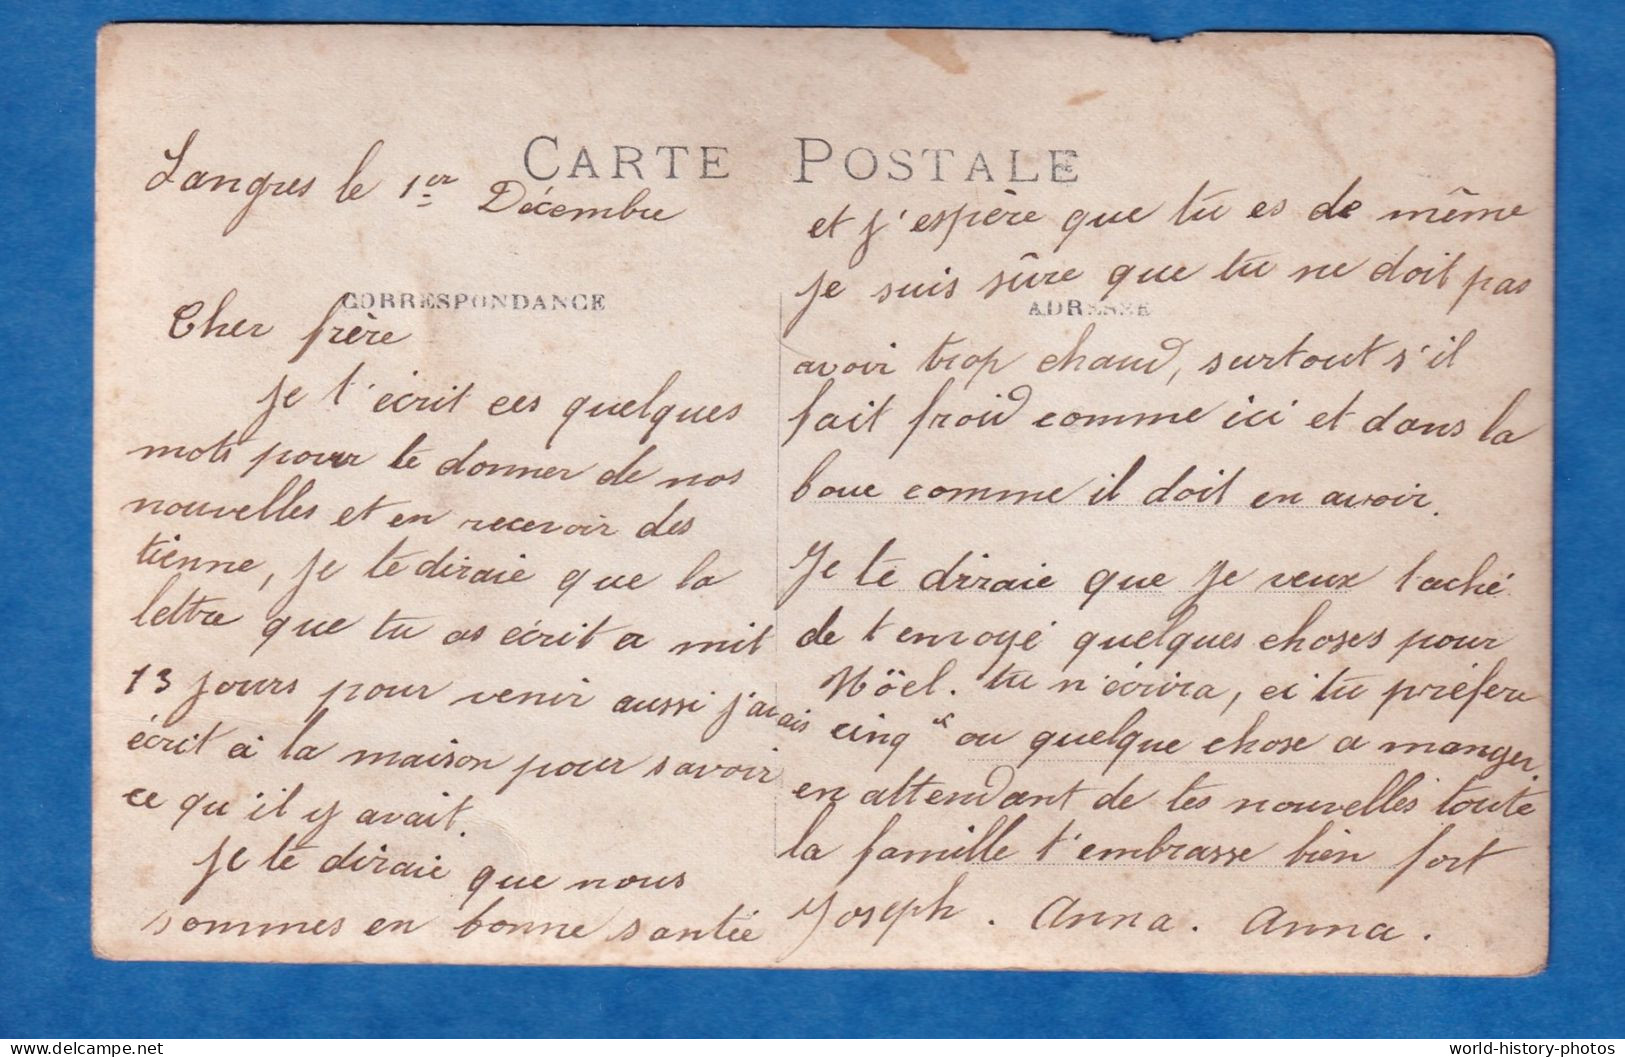 CARTE POSTALE
Langres le 1er Décembre
CORRESPONDANCE
Cher frère
je t'écrit ces quelques
mots pour te donner de nos
nouvelles et en recevoir des
tienne, je te diraie que la
lettre que tu as écrit a mit
13 jours pour venir aussi j'avais
écrit à la maison pour savoir
ce qu'il y avait.
je te diraie que nous
sommes en bonne santée
et j'espère que tu es de même
je suis sûre que tu ne doit pas
ADRESSE
avoir trop chaud, surtout s'il
fait froid comme ici et dans la
boue comme il doit en avoir.
Je te diraie que je veux taché
de t'envoyé quelques choses pour
Nöel. tu n'écrira, ci tu préfere
cinq ou quelque chose a manger.
en attendant de tes nouvelles toute
la famille t'embrasse bien fort
Joseph. Anna. Anna.
world-history-photos